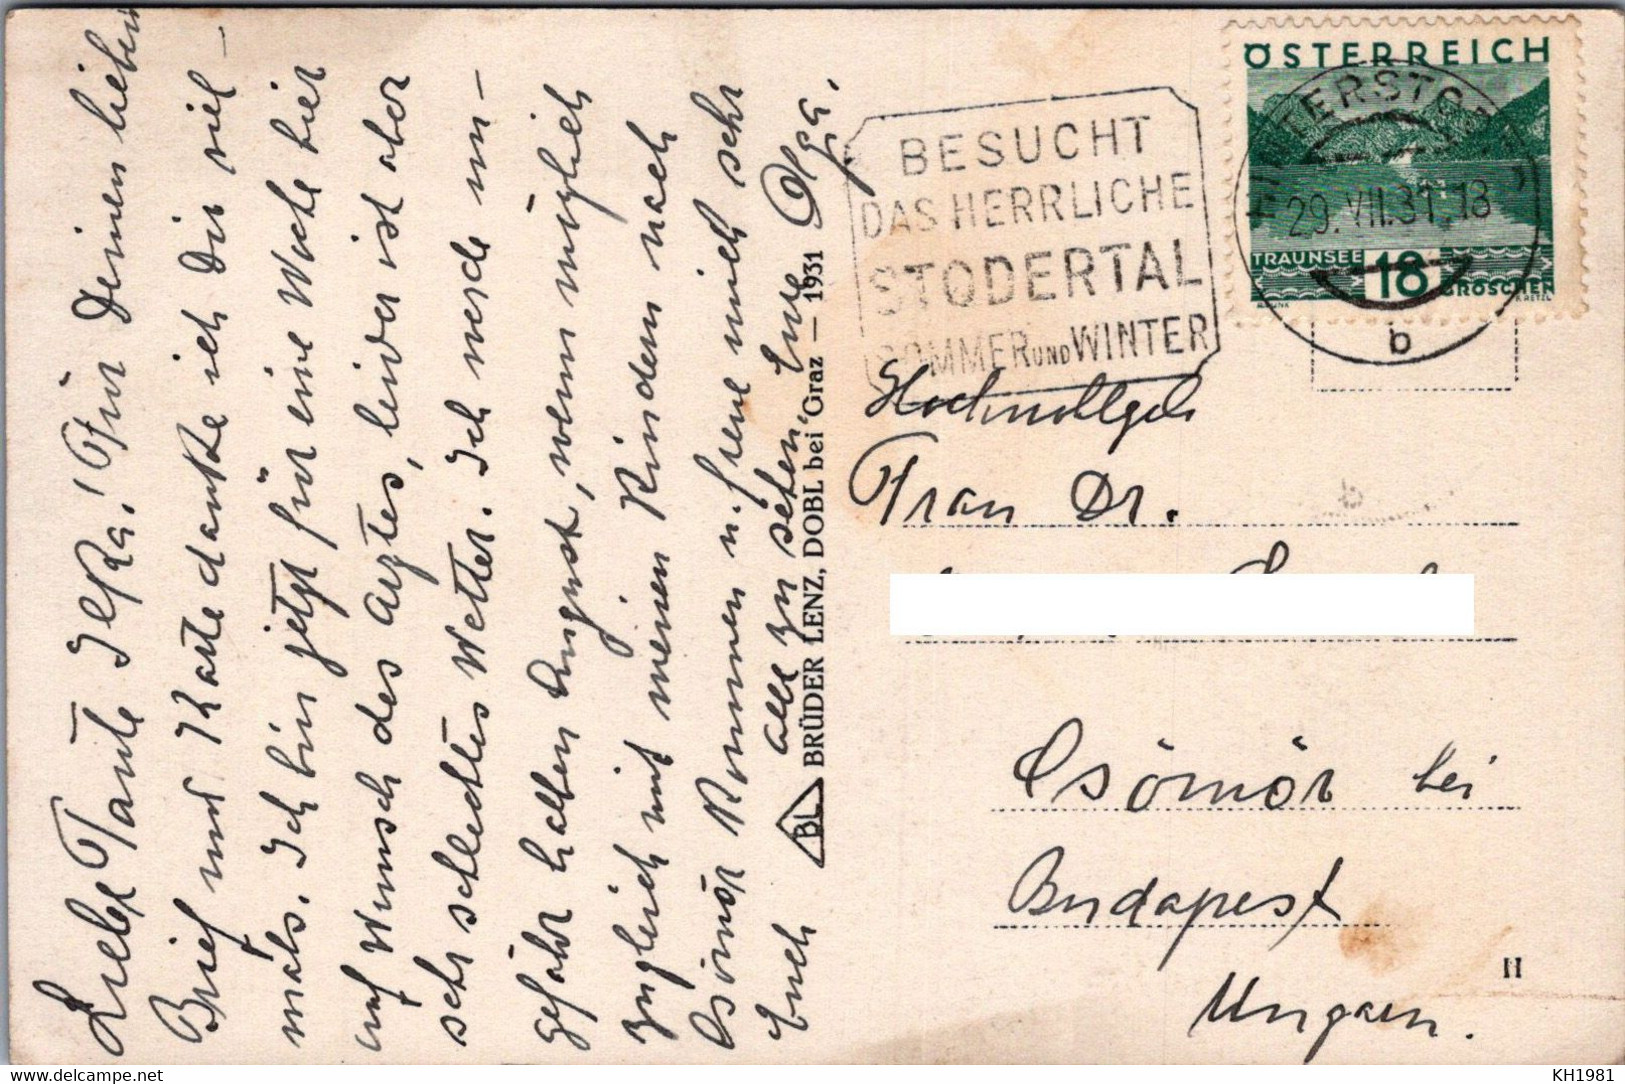 Liebe Tante Ilka! Für Deinen lieben
Brief und Karte danke ich Dir viel-
mals. Ich bin jetzt für eine Woche hier
auf Wunsch des Arztes, leider ist aber
sehr schlechtes Wetter. Ich werde un-
gefähr halben August, wenn möglich
zugleich mit meinen Kindern nach
Csömör kommen u. freue mich sehr
Euch alle zu sehen. Eure Olga.
BL BRÜDER LENZ, DOBL bei Graz — 1931
BESUCHT
DAS HERRLICHE
STODERTAL
SOMMER UND WINTER
ÖSTERREICH
HINTERSTODER
29.VII.31.18
TRAUNSEE
18
GROSCHEN
b
Hochwollgeb
Frau Dr.
Csömör bei
Budapest
Ungarn.
II
www.delcampe.net
KH1981